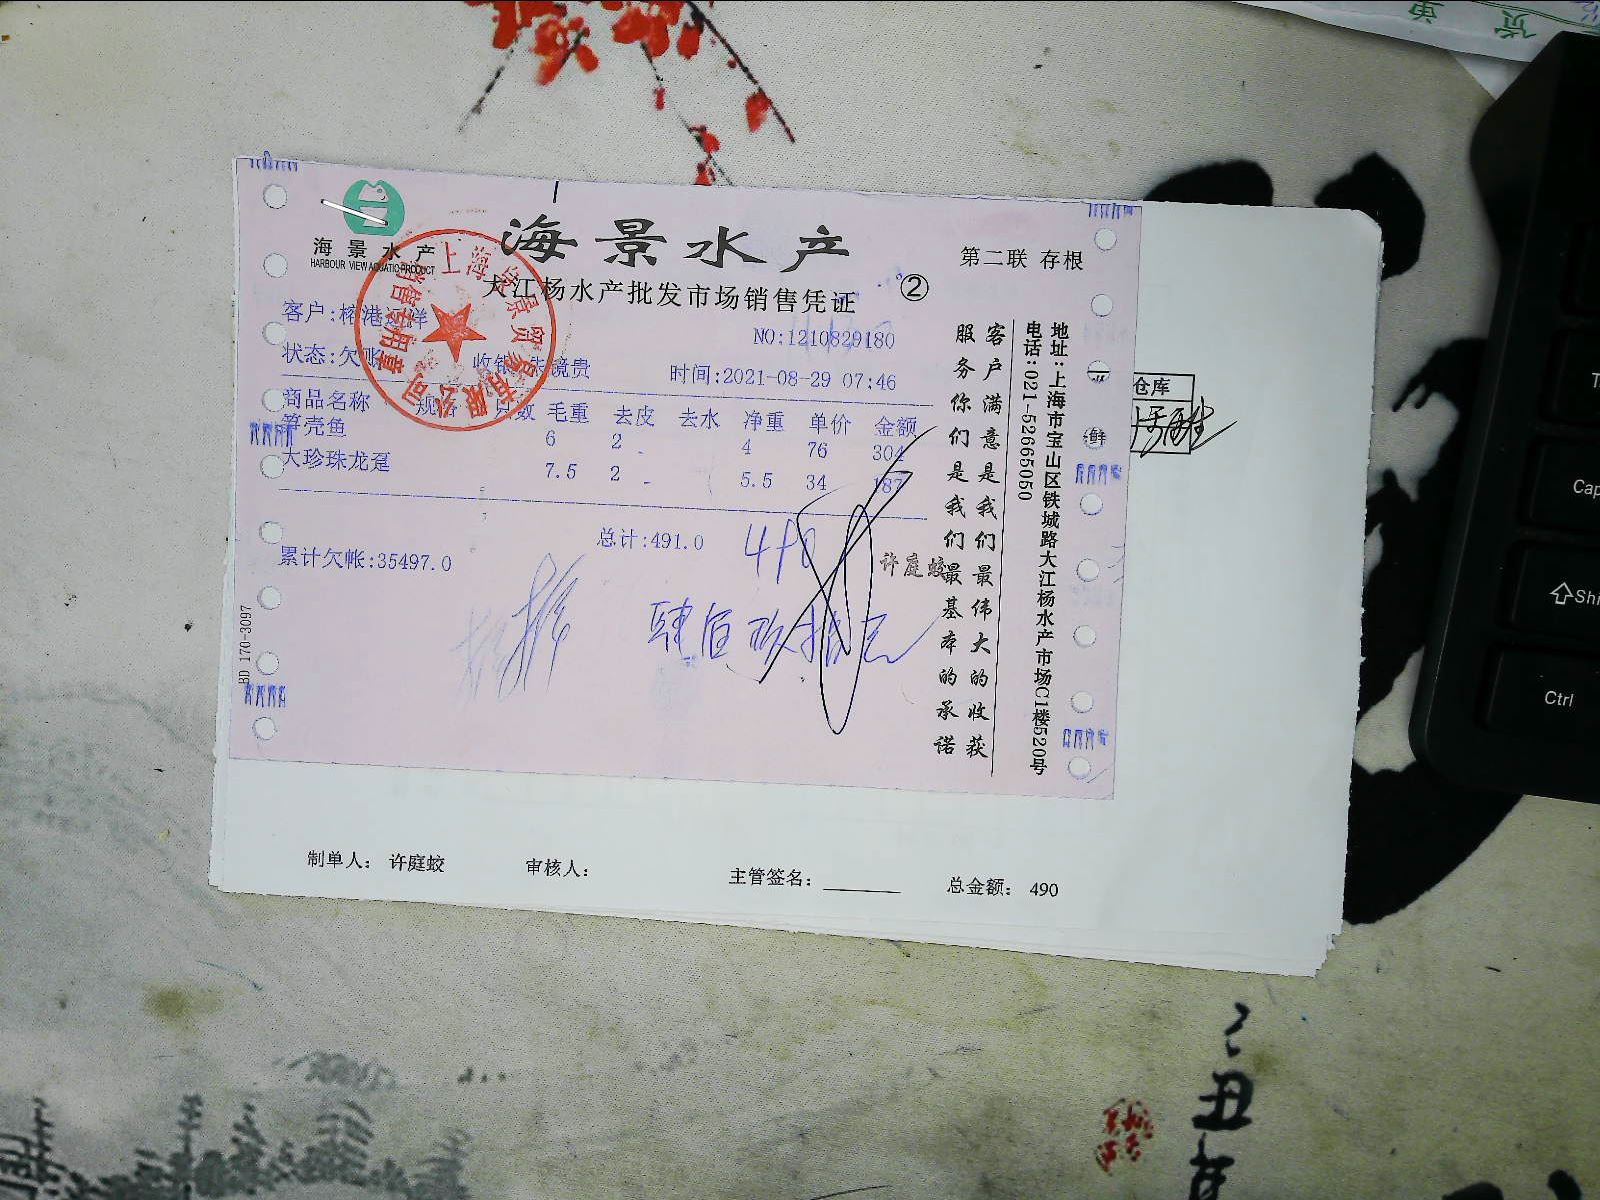 海景水产
HARBOUR VIEW AQUATIC PRODUCT
海景水产
第二联 存根
大江杨水产批发市场销售凭证
②
客户:榕港远洋
NO:1210829180
状态:欠账
时间:2021-08-29 07:46
商品名称 毛重 去皮 去水 净重 单价 金额
笋壳鱼 6 2 4 76 304
大珍珠龙趸 7.5 2 5.5 34 187
总计:491.0
490
许庭蛟
累计欠帐:35497.0
肆佰玖拾元
客户满意是我们最伟大的收获
服务你们是我们最基本的承诺
地址:上海市宝山区铁城路大江杨水产市场C1楼520号
电话:021-52665050
BD 170-3097
仓库
鲜
制单人: 许庭蛟
审核人:
主管签名:
总金额: 490
Cap
Shi
Ctrl
丑